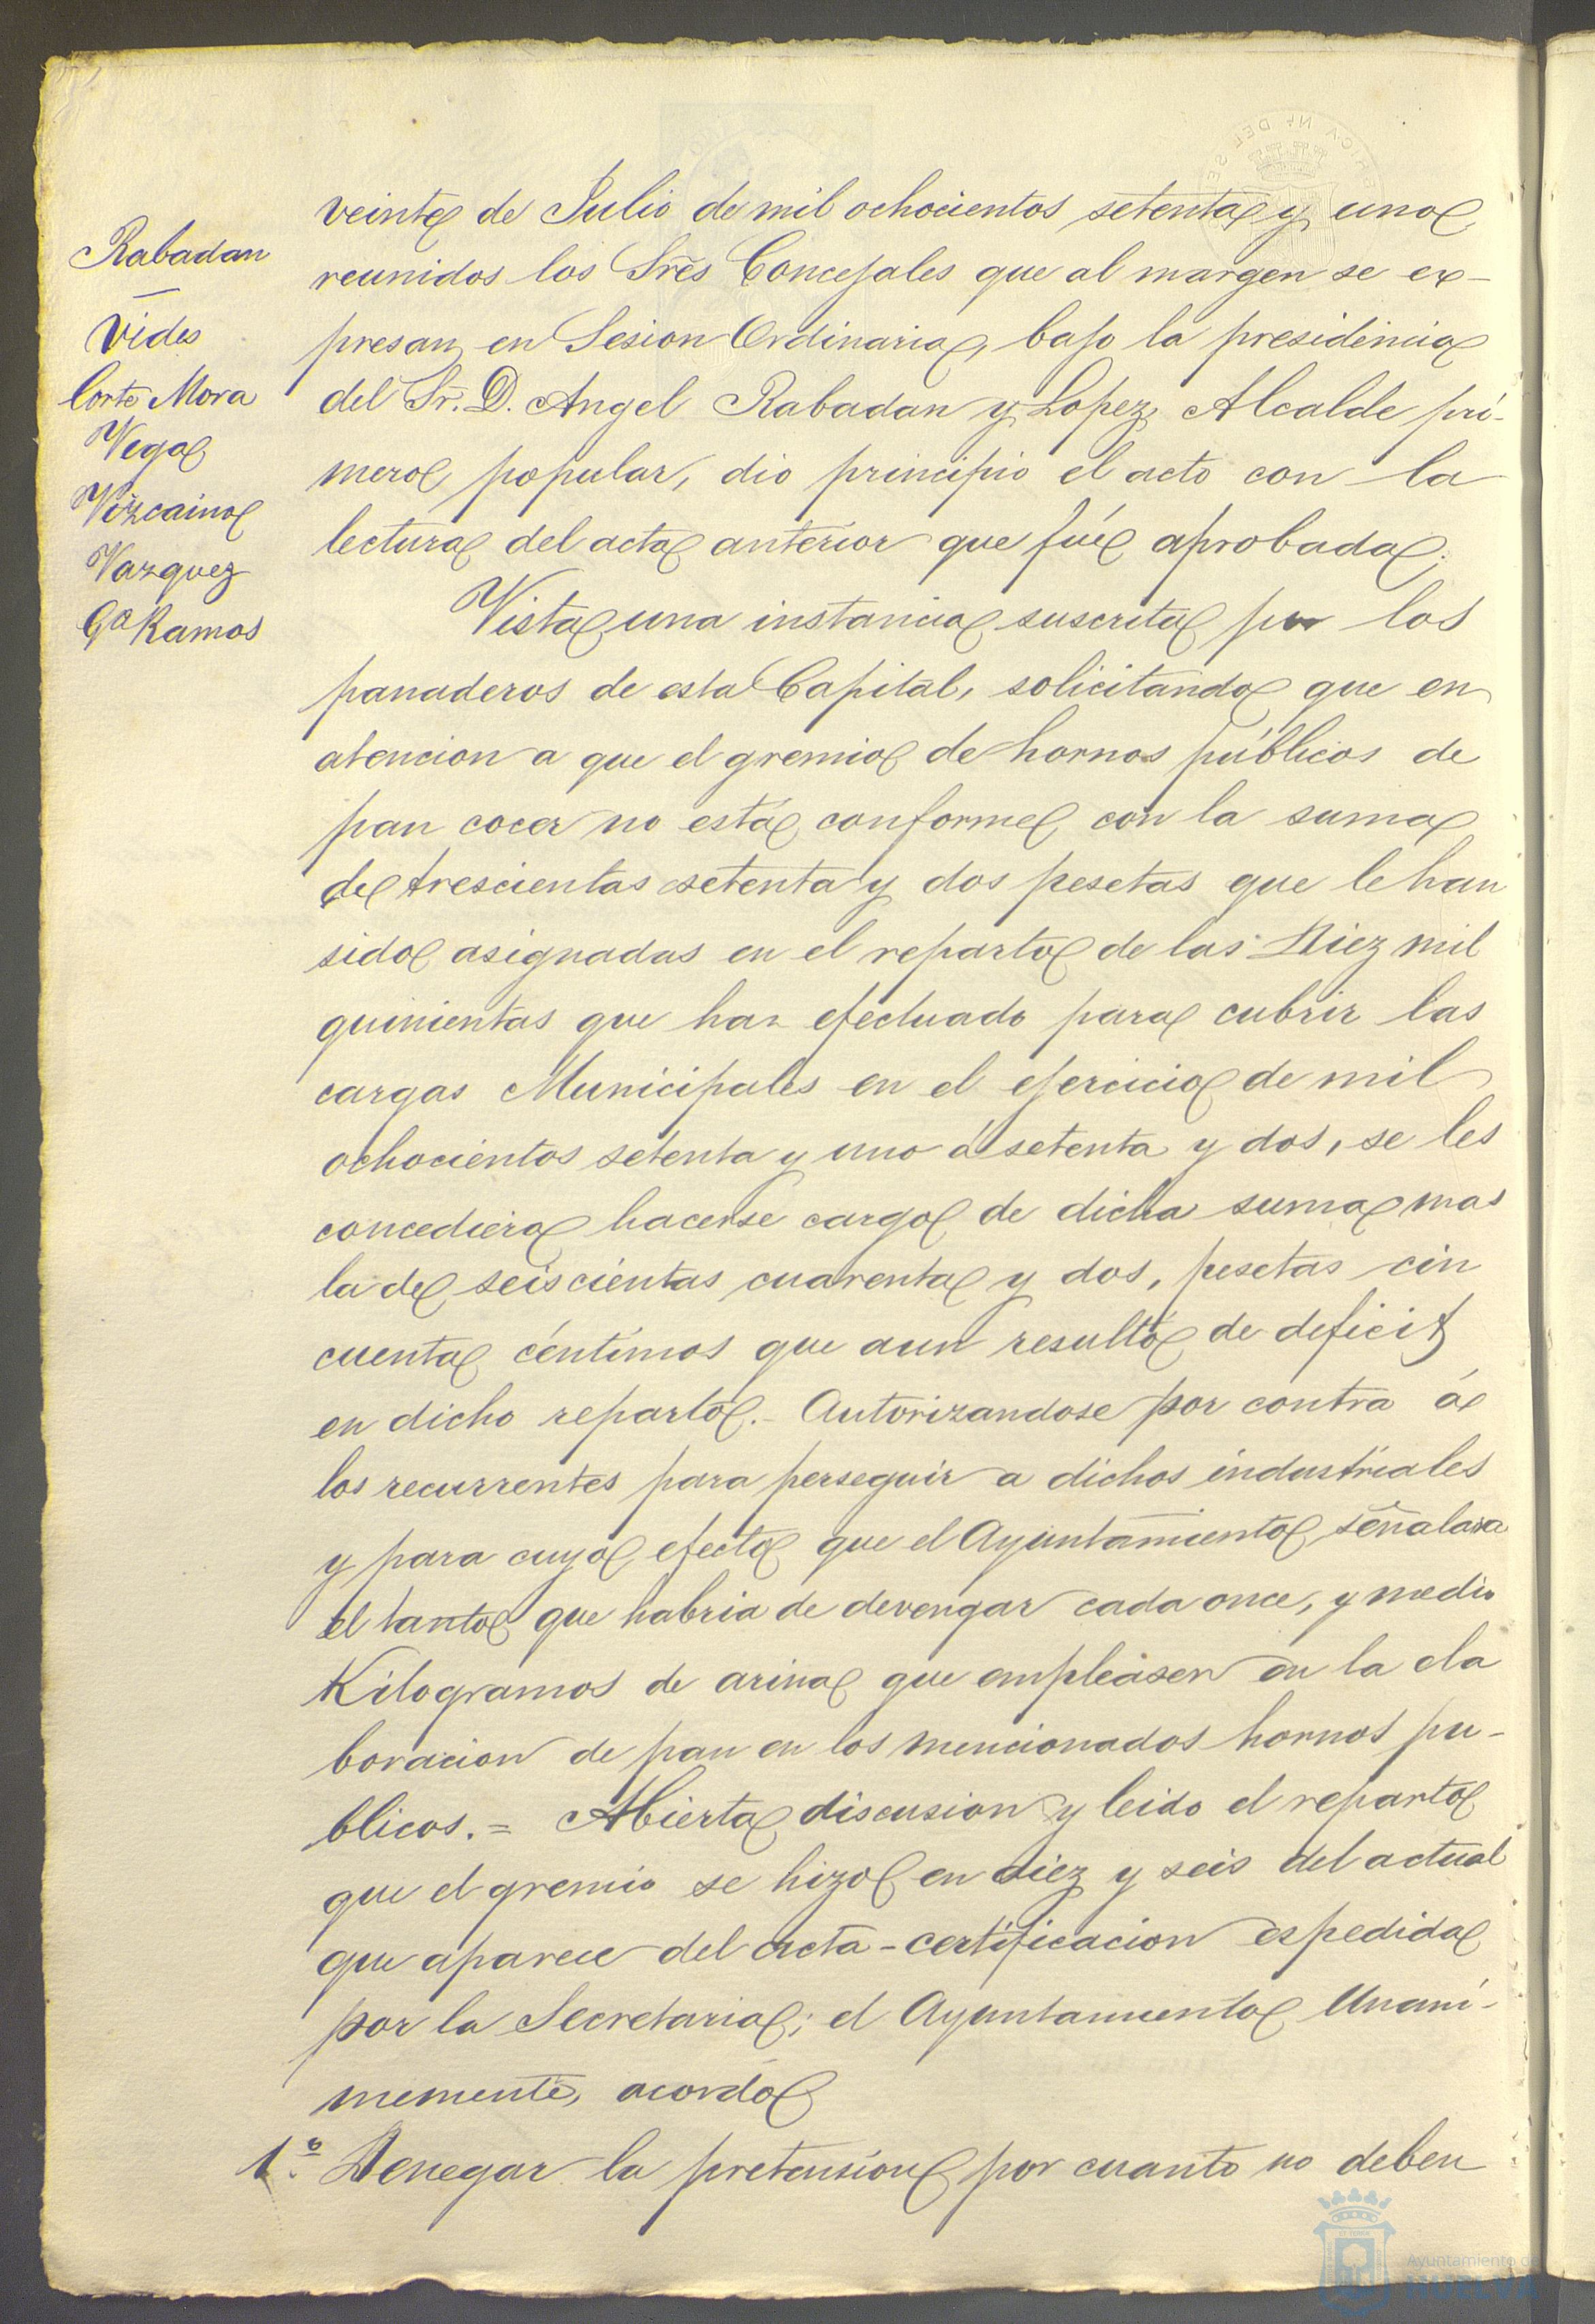 Rabadan
Vides
Corte Mora
Vega
Vizcaino
Vazquez
Gª Ramos
veinte de Julio de mil ochocientos setenta y uno
reunidos los Sres Concejales que al margen se ex-
presan en Sesion Ordinaria, bajo la presidencia
del Sr. D. Angel Rabadan y Lopez, Alcalde pri-
mero popular, dio principio el acto con la
lectura del acta anterior que fué aprobada.
Vista una instancia suscrita por los
panaderos de esta Capital, solicitando que en
atencion a que el gremio de hornos públicos de
pan cocer no está conforme con la suma
de trescientas setenta y dos pesetas que le han
sido asignadas en el reparto de las Diez mil
quinientas que han efectuado para cubrir las
cargas Municipales en el ejercicio de mil
ochocientos setenta y uno á setenta y dos, se les
concediera hacerse cargo de dicha suma mas
la de seiscientas cuarenta y dos, pesetas cin
cuenta céntimos que aun resultó de deficit
en dicho reparto.- Autorizandose por contra á
los recurrentes para perseguir a dichos industriales
y para cuyo efecto que el Ayuntamiento señalara
el tanto que habria de devengar cada once, y medio
Kilogramos de arina que empleásen en la ela
boracion de pan en los mencionados hornos pu-
blicos.= Abierta discusion y leido el reparto
que el gremio se hizo en diez y seis del actual
que aparece del acta-certificacion espedida
por la Secretaria; el Ayuntamiento Unani-
memente, acordó
1.º Denegar la pretension por cuanto no deben
Ayuntamiento de
HUELVA